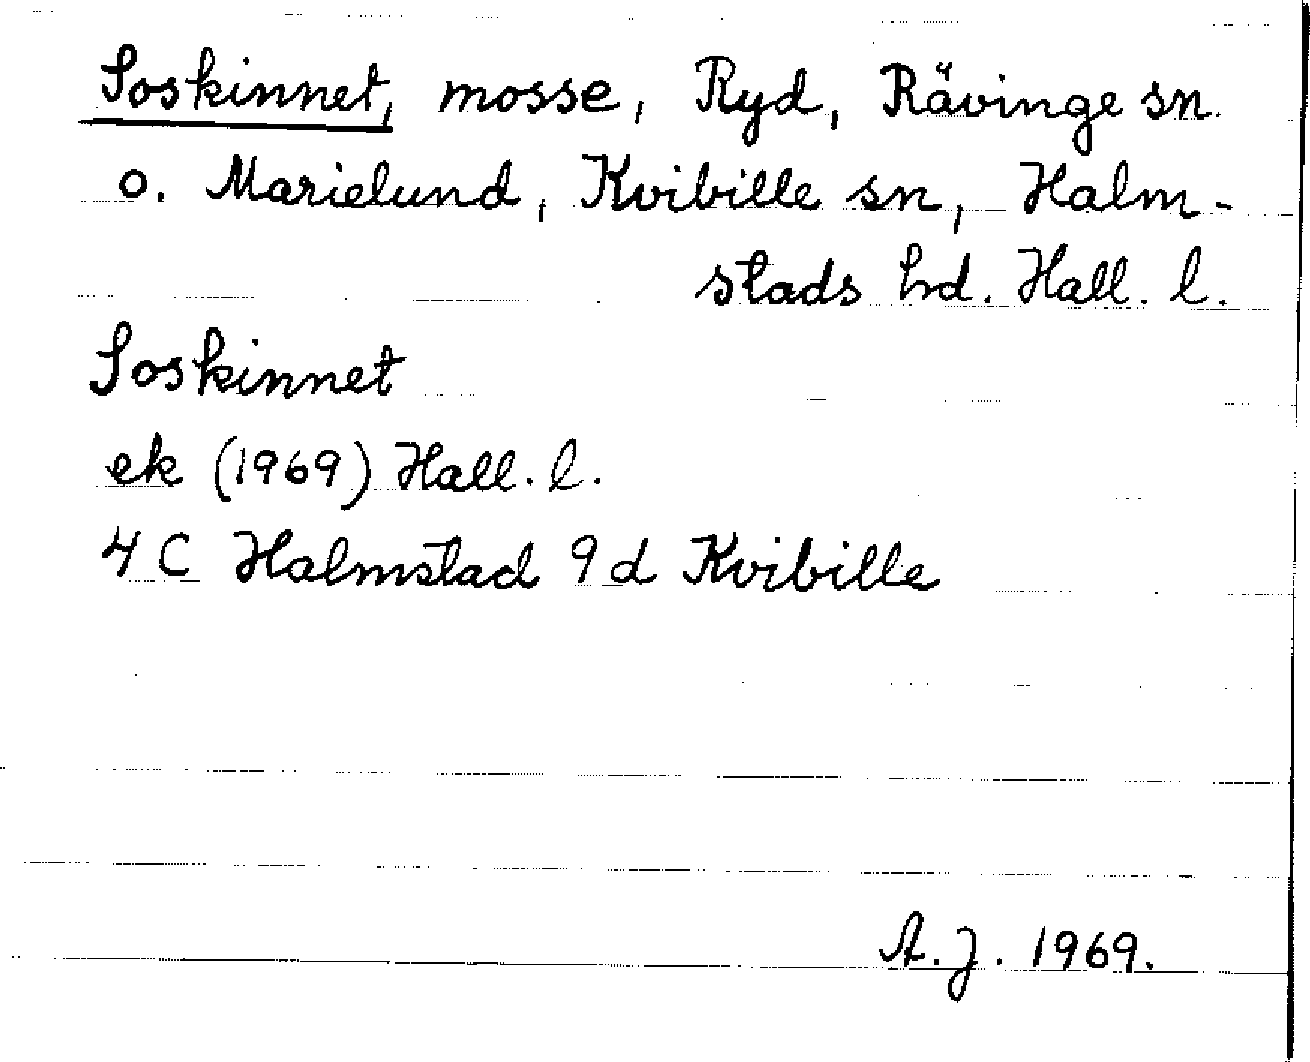 Soskinnet, mosse, Ryd, Rävinge sn.
o. Marielund, Kvibille sn, Halm-
stads hd. Hall. l.
Soskinnet
ek (1969) Hall. l.
4 C Halmstad 9 d Kvibille
A. J. 1969.